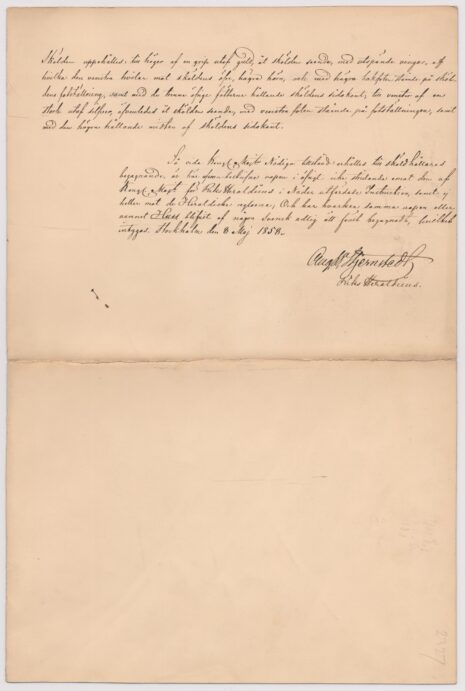 Skölden uppehålles: till höger af en grip utaf guld, åt skölden seende, med utspända vingar, af
hvilka den venstra hvilar mot sköldens öfre, högra hörn, och med högra bakfoten stående på sköl-
dens fotställning, samt med de tvenne öfrige fötterne hållande sköldens sidokant; till venster af en
stork utaf silfver, äfvenledes åt skölden seende, med venstra foten stående på fotställningen, samt
med den högra hållande midten af sköldens sidokant.
Så vida Kongl. Majts Nådiga tillstånd erhålles till sköldhållares
begagnande, är här ofvan beskrifne vapen i öfrigt icke stridande emot den af
Kongl. Majt för Riks Heraldicus i Nåder utfärdade Instruction, samt ej
heller mot de Heraldiske reglorna; Och har hvarken samma vapen eller
namnet blifvit af någon Svensk adlig ätt förut begagnadt, hvilket
intygas. Stockholm den 8 Maj 1858.
Aug. W. Stjernstedt
Riks Heraldicus.